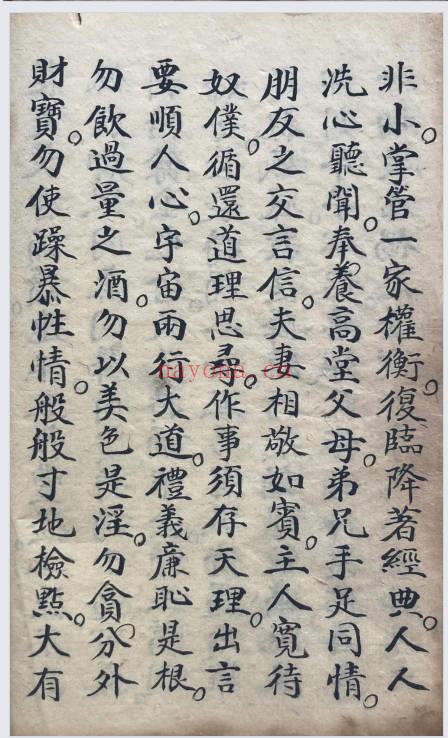 非小。掌管一家權衡。復臨降著經典。人人
洗心聽聞。奉養高堂父母。弟兄手足同情。
朋友之交言信。夫妻相敬如賓。主人寬待
奴僕。循還道理思尋。作事須存天理。出言
要順人心。宇宙兩行大道。禮義廉恥是根。
勿飲過量之酒。勿以美色是淫。勿貪分外
財寶。勿使躁暴性情。般般寸地檢點。大有
nayona.cn